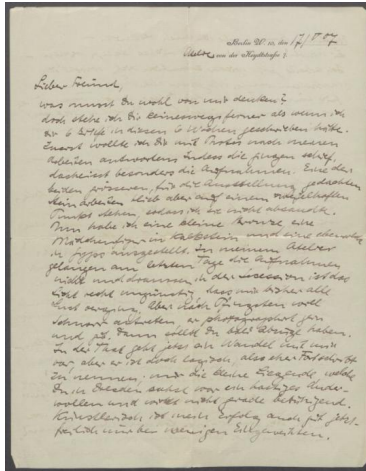 Berlin W. 10, den 17/V 07
Atelier von der Heydtstraße 7.
Lieber Freund,
was musst Du wohl von mir denken?
doch stehe ich Dir keineswegs ferner als wenn ich
Dir 6 Briefe in diesen 6 Wochen geschrieben hätte.
Zuerst wollte ich Dir mit Photos nach meinen
Arbeiten antworten indess die gingen schief,
das heisst besonders die Aufnahmen. Eine der
beiden grösseren, für die Ausstellung gedachten
Steinarbeiten blieb aber auf einem
Punkt stehen, sodass ich sie nicht absende.
Nun habe ich eine kleine Bronze eine
Mädchenfigur in Kalkstein und eine
in Gyps ausgestellt. In meinem Atelier
gelangen am letzten Tage die Aufnahmen
nicht und draussen in der Secession ist das
Licht recht ungünstig, dass mir bisher alle
Lust verging. Aber nach Pfingsten will
Schwarz antreten, er photographiert gern
und gut. Dann sollst Du bald Abzüge haben.
In der That geht jetzt ein Wandel mit mir
vor, aber er ist doch logisch, also eher Fortschritt
zu nennen, nur die kleine Liegende, welche
Du in Dresden sahst war ein
wollen und wirkt nicht gerade
Künstlerisch ist mein Erfolg auch gut jetzt
freilich nur bei den wenigen